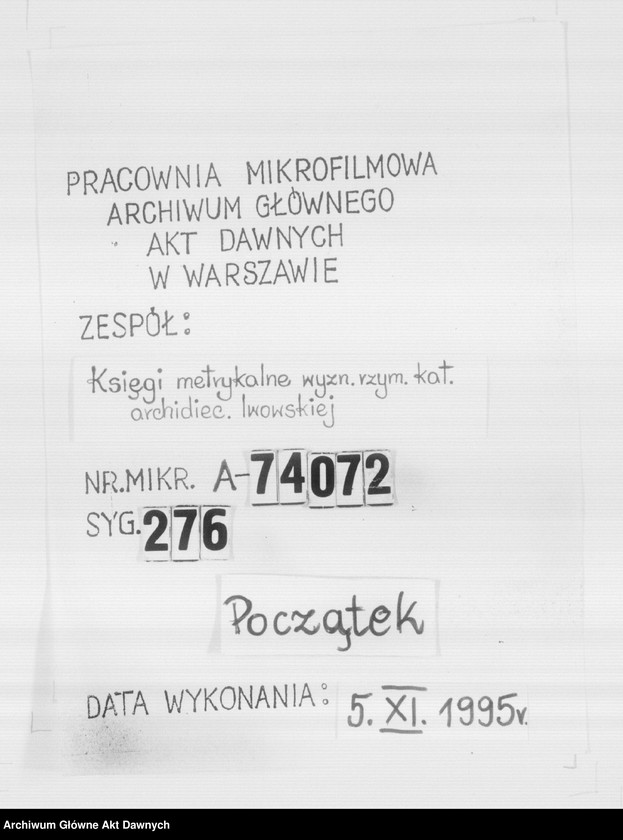 PRACOWNIA MIKROFILMOWA
ARCHIWUM GŁÓWNEGO
AKT DAWNYCH
W WARSZAWIE
ZESPÓŁ:
Księgi metrykalne wyzn. rzym. kat.
archidiec. lwowskiej
NR.MIKR. A-74072
SYG. 276
Początek
DATA WYKONANIA: 5. XI. 1995r.
Archiwum Główne Akt Dawnych